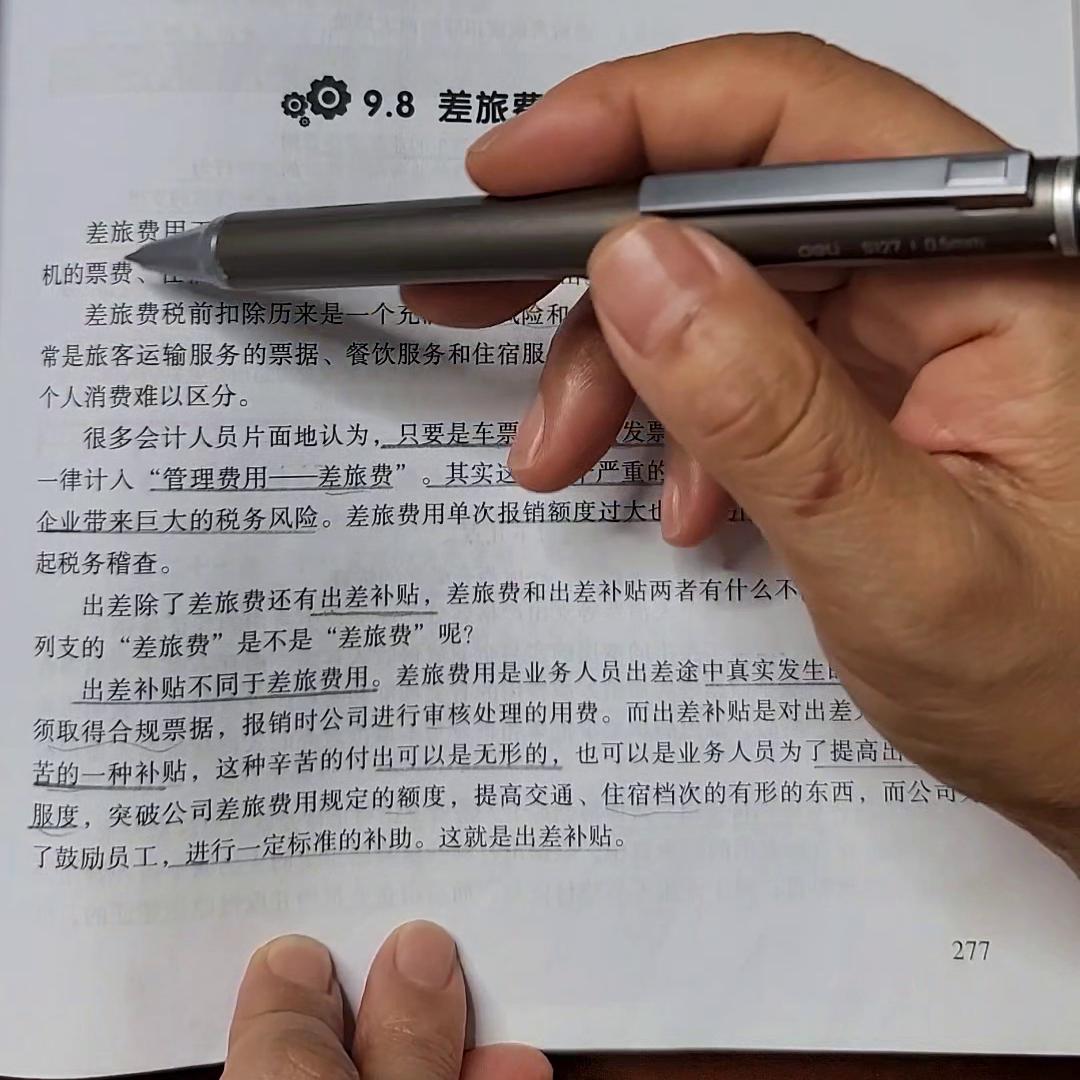 9.8 差旅费
差旅费用
机的票费、
差旅费税前扣除历来是一个充 风险和
常是旅客运输服务的票据、餐饮服务和住宿服
个人消费难以区分。
很多会计人员片面地认为，只要是车票 发票
一律计入“管理费用——差旅费”。其实这 严重的
企业带来巨大的税务风险。差旅费用单次报销额度过大也
起税务稽查。
出差除了差旅费还有出差补贴，差旅费和出差补贴两者有什么不
列支的“差旅费”是不是“差旅费”呢？
出差补贴不同于差旅费用。差旅费用是业务人员出差途中真实发生
须取得合规票据，报销时公司进行审核处理的用费。而出差补贴是对出差
苦的一种补贴，这种辛苦的付出可以是无形的，也可以是业务人员为了提高出
服度，突破公司差旅费用规定的额度，提高交通、住宿档次的有形的东西，而公司
了鼓励员工，进行一定标准的补助。这就是出差补贴。
277
deli S127 0.5mm